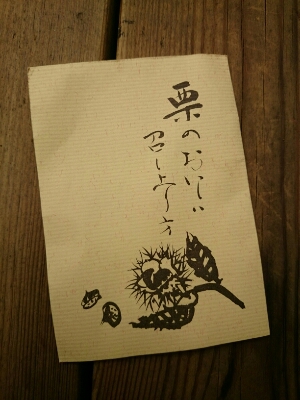 栗のおいしい
召し上り方